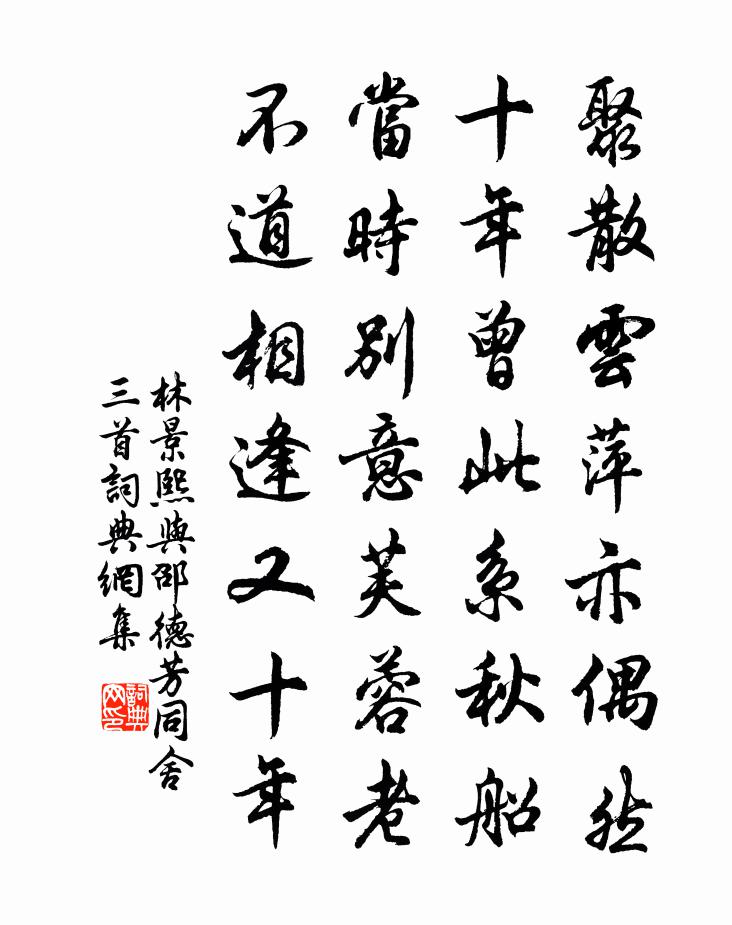 聚散雲萍亦偶然
十年曾此系秋船
當時別意芙蓉老
不道相逢又十年
林景熙與邵德芳同舍
三首詞典網集
詞典網印